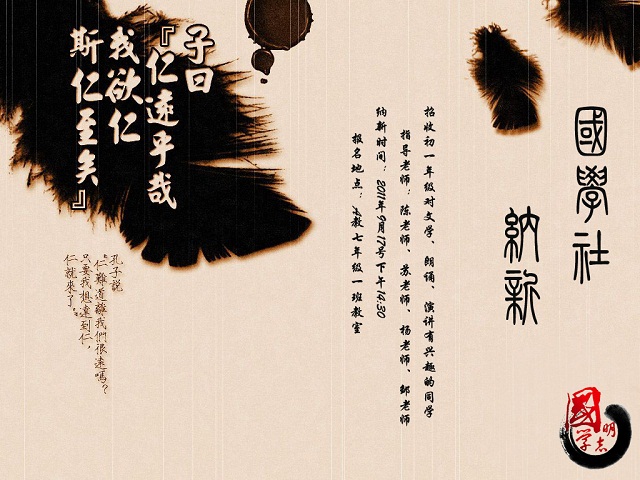 國學社
納新
招收初一年级对文学、朗诵、演讲有兴趣的同学
指导老师：陈老师、苏老师、杨老师、邹老师
纳新时间：2011年9月17号下午14:30
报名地点：小教七年级一班教室
子曰
『仁遠乎哉
我欲仁
斯仁至矣』
孔子說
“仁難道離我們很遠嗎？
只要我想達到仁，
仁就來了。”
國学
明志